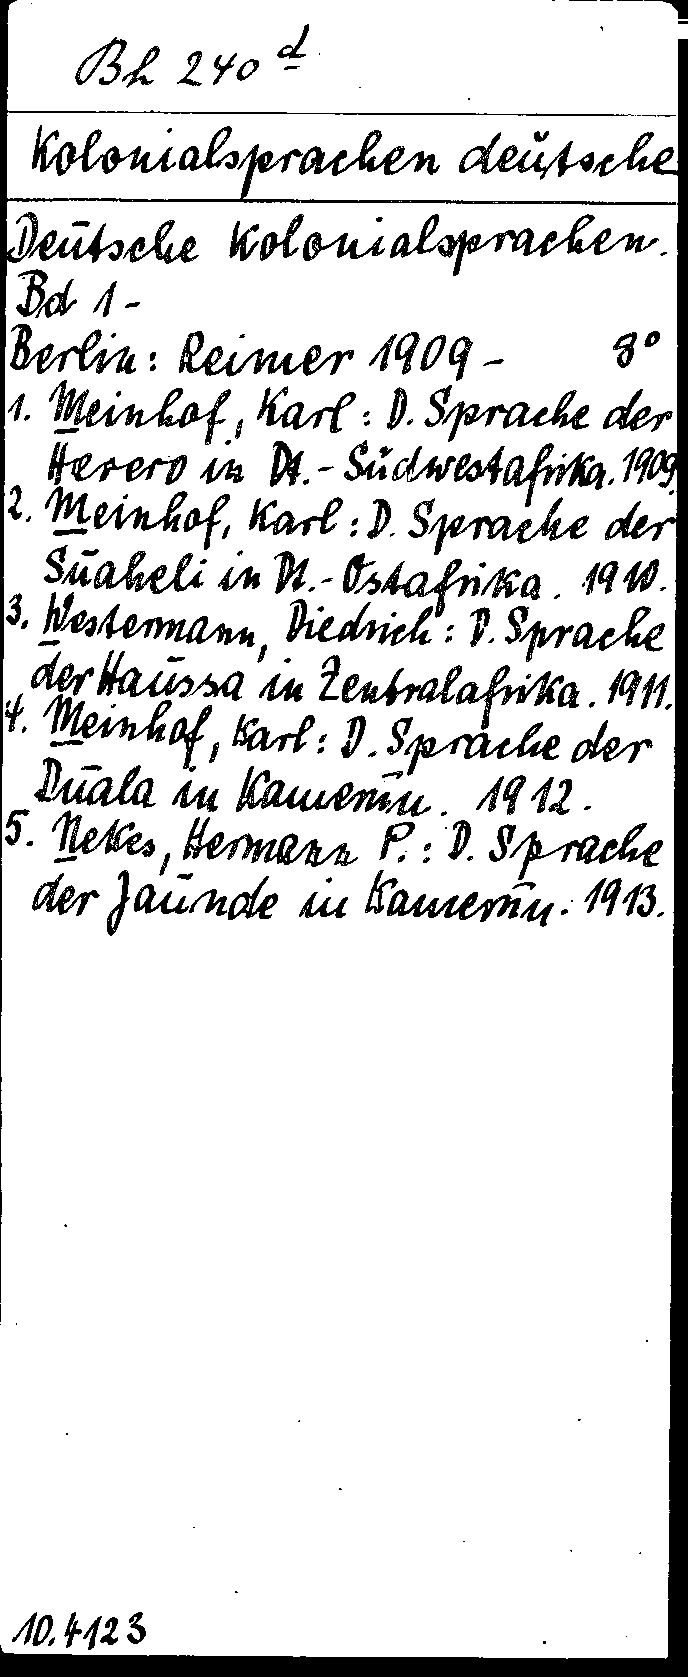 Bh 240 d
Kolonialsprachen deutsche
Deutsche Kolonialsprachen.
Bd 1-
Berlin: Reimer 1909 - 8°
1. Meinhof, Karl: D. Sprache der
Herero in Dt.- Südwestafrika. 1909.
2. Meinhof, Karl: D. Sprache der
Suaheli in Dt.- Ostafrika. 1910.
3. Westermann, Diedrich: D. Sprache
der Haussa in Zentralafrika. 1911.
4. Meinhof, Karl: D. Sprache der
Duala in Kamerun. 1912.
5. Nekes, Hermann P.: D. Sprache
der Jaunde in Kamerun. 1913.
10.4123